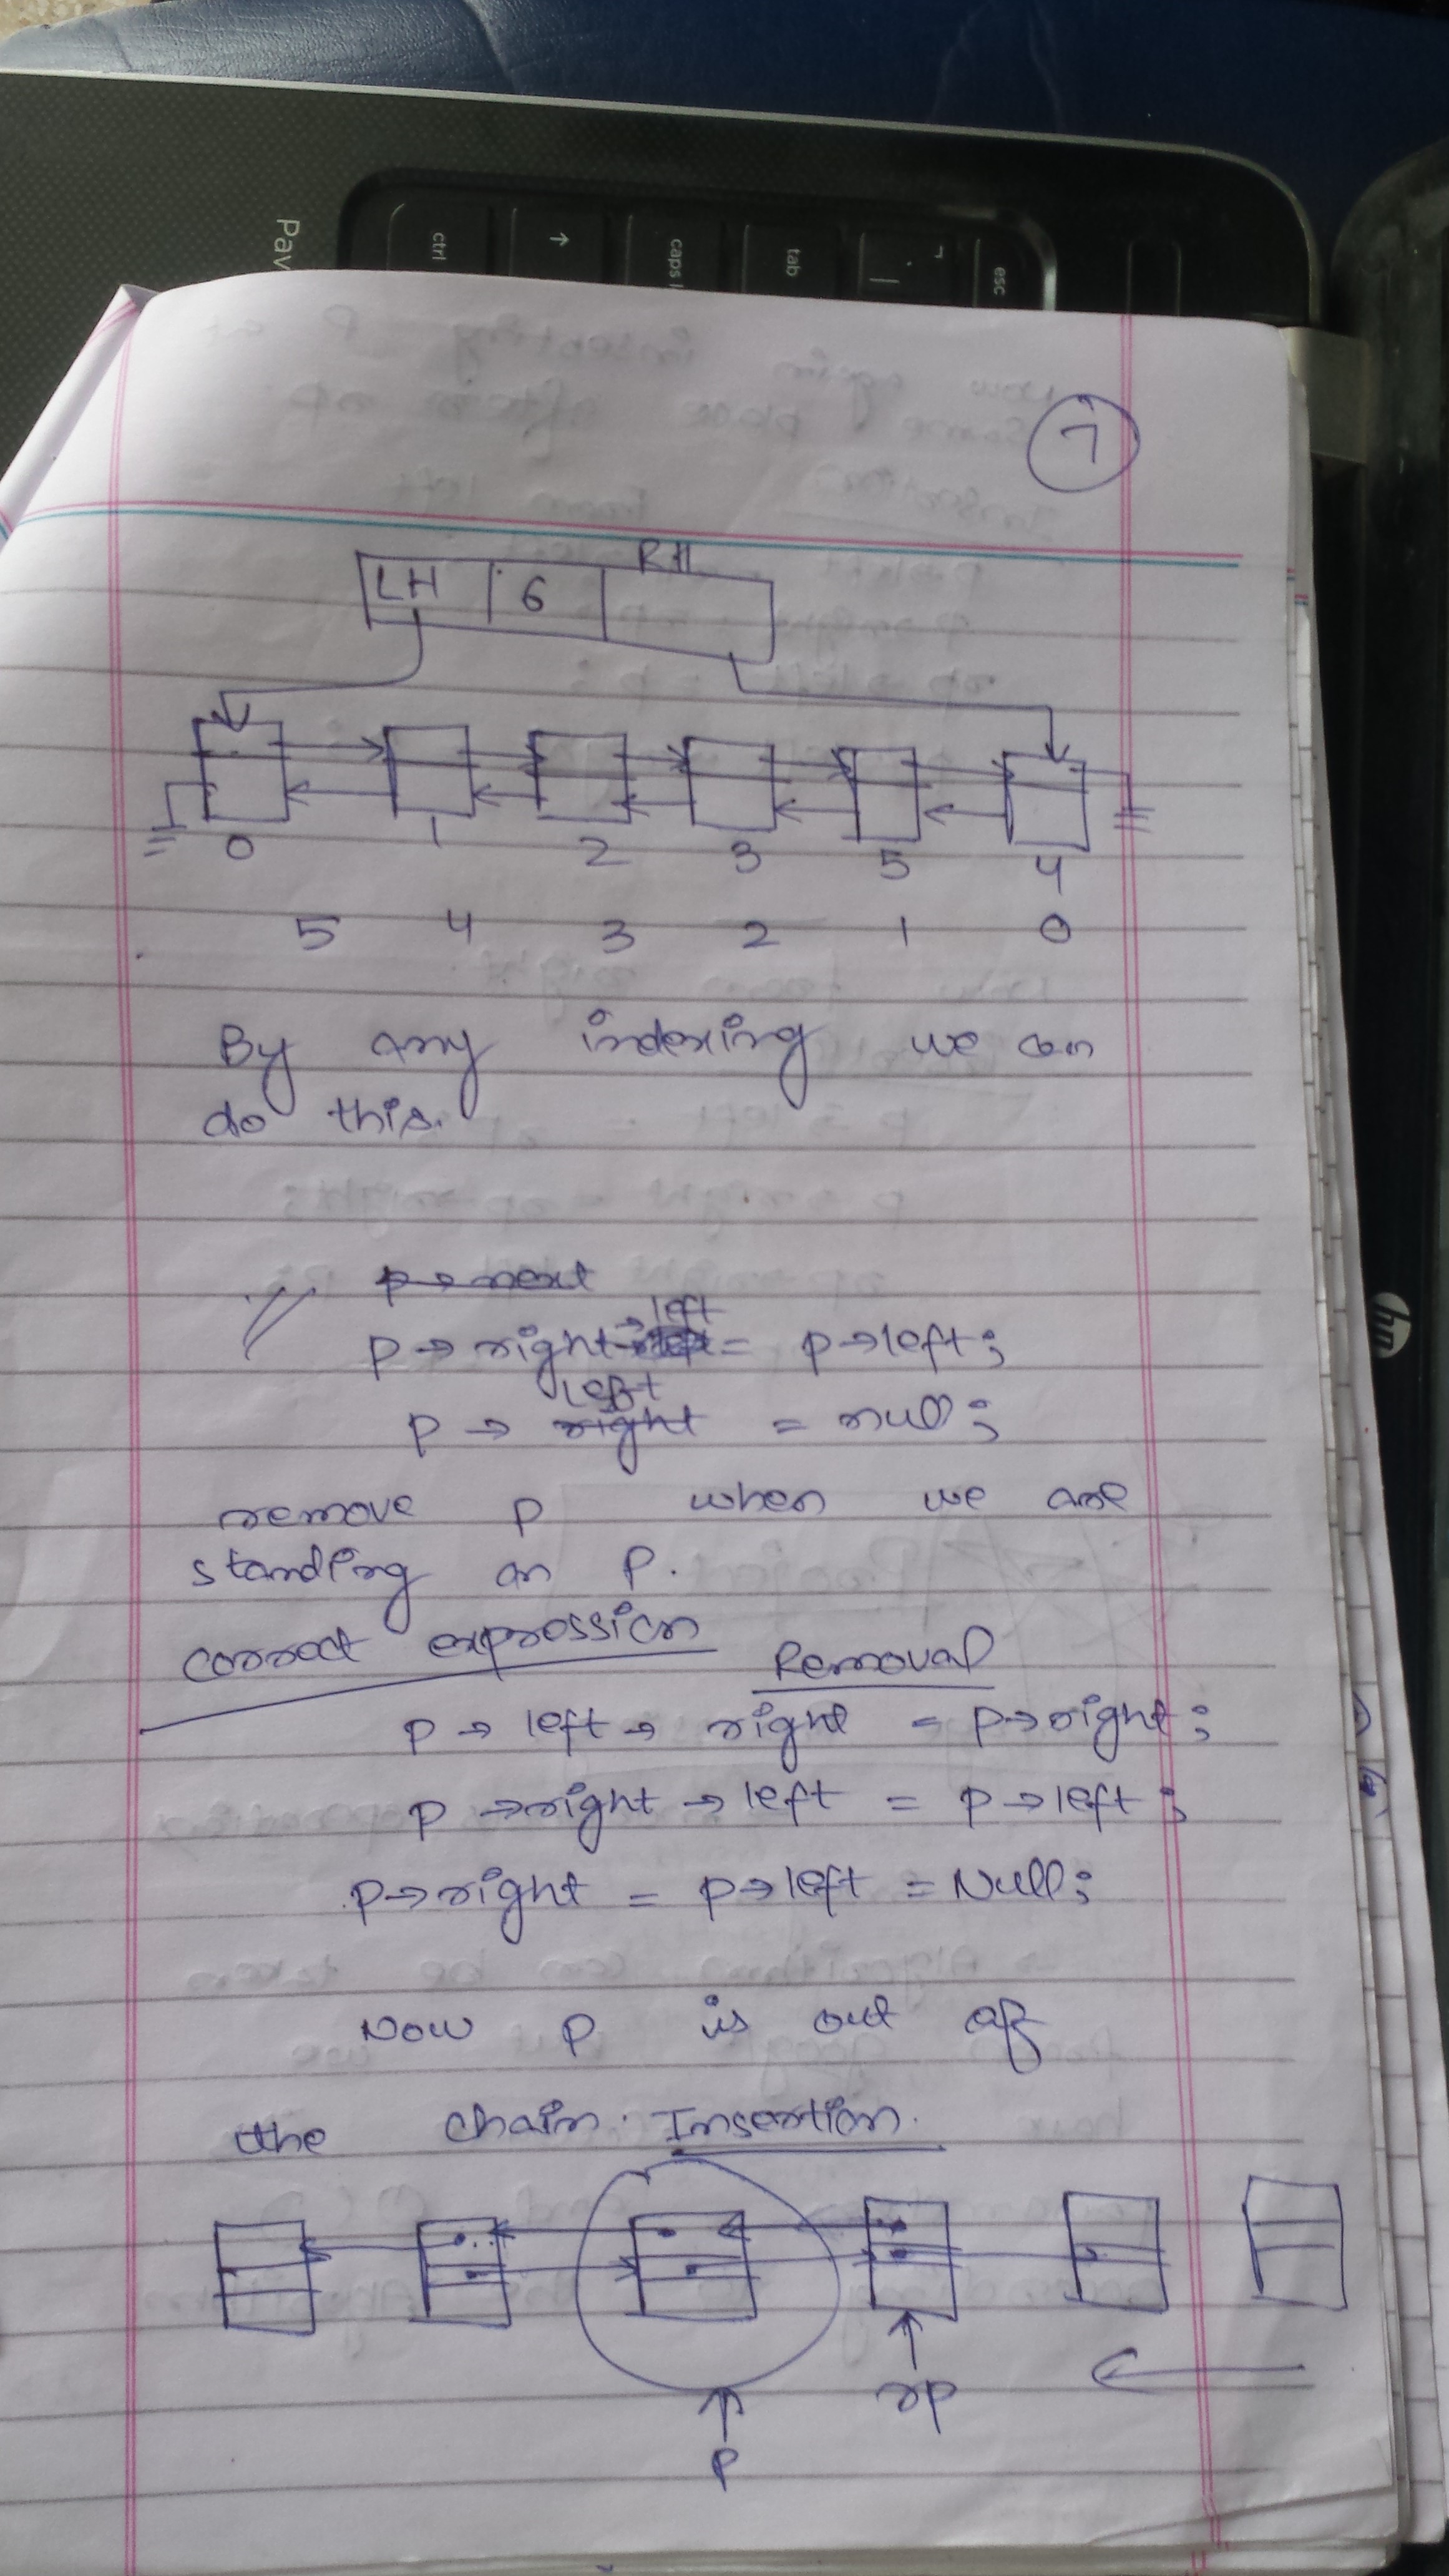 Pav
ctrl
caps l
tab
esc
hp
7
RH
LH 6
0 1 2 3 5 4
5 4 3 2 1 0
By any indexing we can
do this.
p→next
left
p→right→ = p→left;
Left
p → right = null;
remove p when we are
standing on P.
correct expression Removal
p → left → right = p→right;
p →right → left = p→left;
p→right = p→left = Null;
Now p is out of
the chain. Insertion.
rp
P